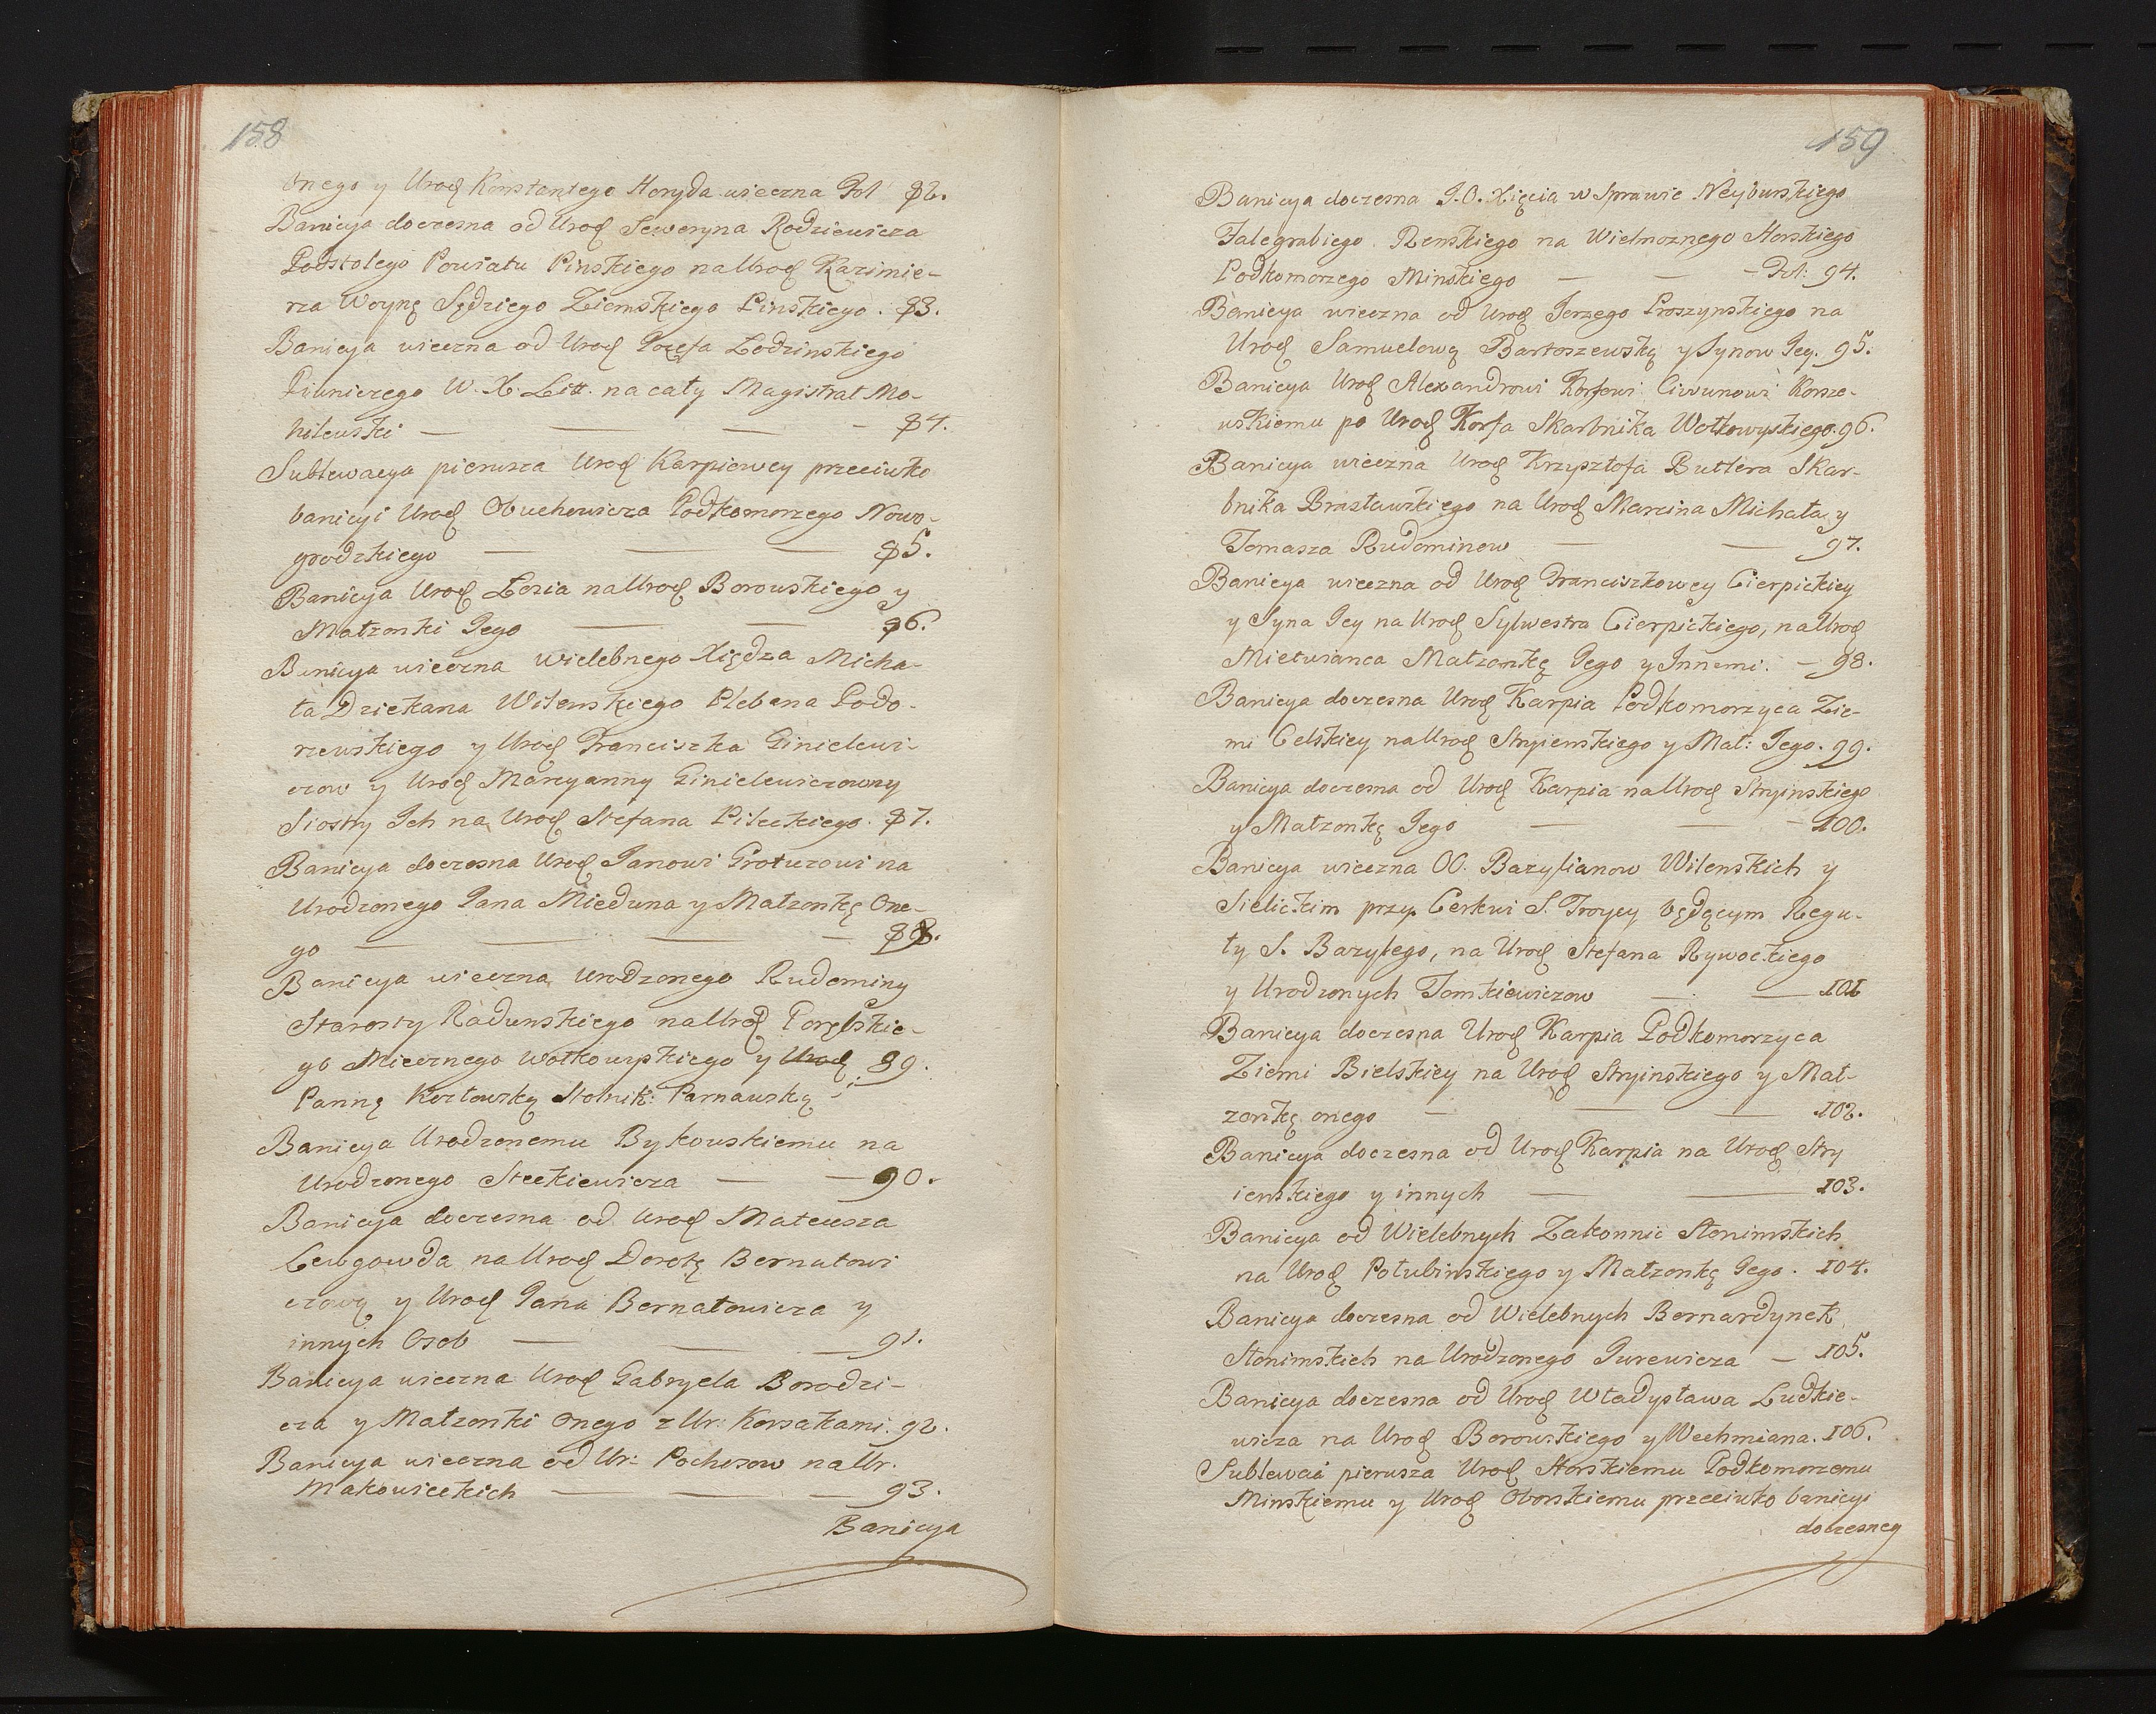 158
onego y Urod Konstantego Horyda wieczna Fol 82.
Banicya doczesna od Urod Seweryna Rodziewicza
Podstolego Powiatu Pinskiego na Urod Kazimie-
rza Woynę Sędziego Ziemskiego Pinskiego. 83.
Banicya wieczna od Urod Jozefa Łodzinskiego
Piwniczego W. X. Litt. na cały Magistrat Mo-
hilewski — — — 84.
Sublewacya pierwsza Urod Karpiowey przeciwko
banicyi Urod Obuchowicza Podkomorzego Nowo-
grodzkiego — — — 85.
Banicya Urod Zozia na Urod Borowskiego y
Małzonki Jego — — 86.
Banicya wieczna wielebnego Xiędza Micha-
ła Dziekana Wilenskiego Plebana Podo-
rzewskiego y Urod Franciszka Ginielewi-
czow y Urod Maryanny Ginielewiczowny
Siostry Ich na Urod Stefana Pileckiego. 87.
Banicya doczesna Urod Janowi Grotuzowi na
Urodzonego Jana Mieduna y Małzonkę One-
go — — — — 88.
Banicya wieczna Urodzonego Rudominy
Starosty Radunskiego na Urod Porębskie-
go Miecznego Wołkowyskiego y Urod 89.
Pannę Kozłowską Stolnik: Parnawską
Banicya Urodzonemu Bykowskiemu na
Urodzonego Steckiewicza — — 90.
Banicya doczesna od Urod Mateusza
Lewgowda na Urod Dorotę Bernatowi
czową y Urod Jana Bernatowicza y
innych Osob — — — 91.
Banicya wieczna Urod Gabryela Borodzi-
cza y Małzonki Onego z Ur: Korsakami. 92.
Banicya wieczna od Ur: Pochosow na Ur.
Makowieckich — — — 93.
Banicya
159
Banicya doczesna J. O. Xięcia w Sprawie Neyburskiego
Falegrabiego Renskiego na Wielmoznego Horskiego
Podkomorzego Minskiego — — — Fol: 94.
Banicya wieczna od Urod Jerzego Proszynskiego na
Urod Samuelową Bartoszewską y Synow Jey. 95.
Banicya Urod Alexandrowi Korfowi Ciwunowi Korsze-
wskiemu po Urod Korfa Skarbnika Wołkowyskiego. 96.
Banicya wieczna Urod Krzysztofa Butlera Skar-
bnika Brasławskiego na Urod Marcina Michała y
Tomasza Rudominow — — 97.
Banicya wieczna od Urod Franciszkowey Cierpickiey
y Syna Jey na Urod Sylwestra Cierpickiego, na Urod
Mietwianca Małzonkę Jego y Innemi. — 98.
Banicya doczesna Urod Karpia Podkomorzyca Zie-
mi Celskiey na Urod Stryienskiego y Mał: Jego. 99.
Banicya doczesna od Urod Karpia na Urod Stryinskiego
y Małzonkę Jego — — — 100.
Banicya wieczna OO. Bazylianow Wilenskich y
Sielickim przy Cerkwi S. Troycy będącym Regu-
ły S. Bazylego, na Urod Stefana Rywockiego
y Urodzonych Tomkiewiczow — — 101
Banicya doczesna Urod Karpia Podkomorzyca
Ziemi Bielskiey na Urod Stryinskiego y Mał-
zonkę onego — — — 102.
Banicya doczesna od Urod Karpia na Urod Stry
ienskiego y innych — — 103.
Banicya od Wielebnych Zakonnic Słonimskich
na Urod Połubinskiego y Małzonkę Jego. 104.
Banicya doczesna od Wielebnych Bernardynek
Słonimskich na Urodzonego Jurewicza — 105.
Banicya doczesna od Urod Władysława Ludkie-
wicza na Urod Borowskiego y Wechmiana. 106.
Sublewcia pierwsza Urod Horskiemu Podkomorzemu
Minskiemu y Urod Oborskiemu przeciwko banicyi
doczesney